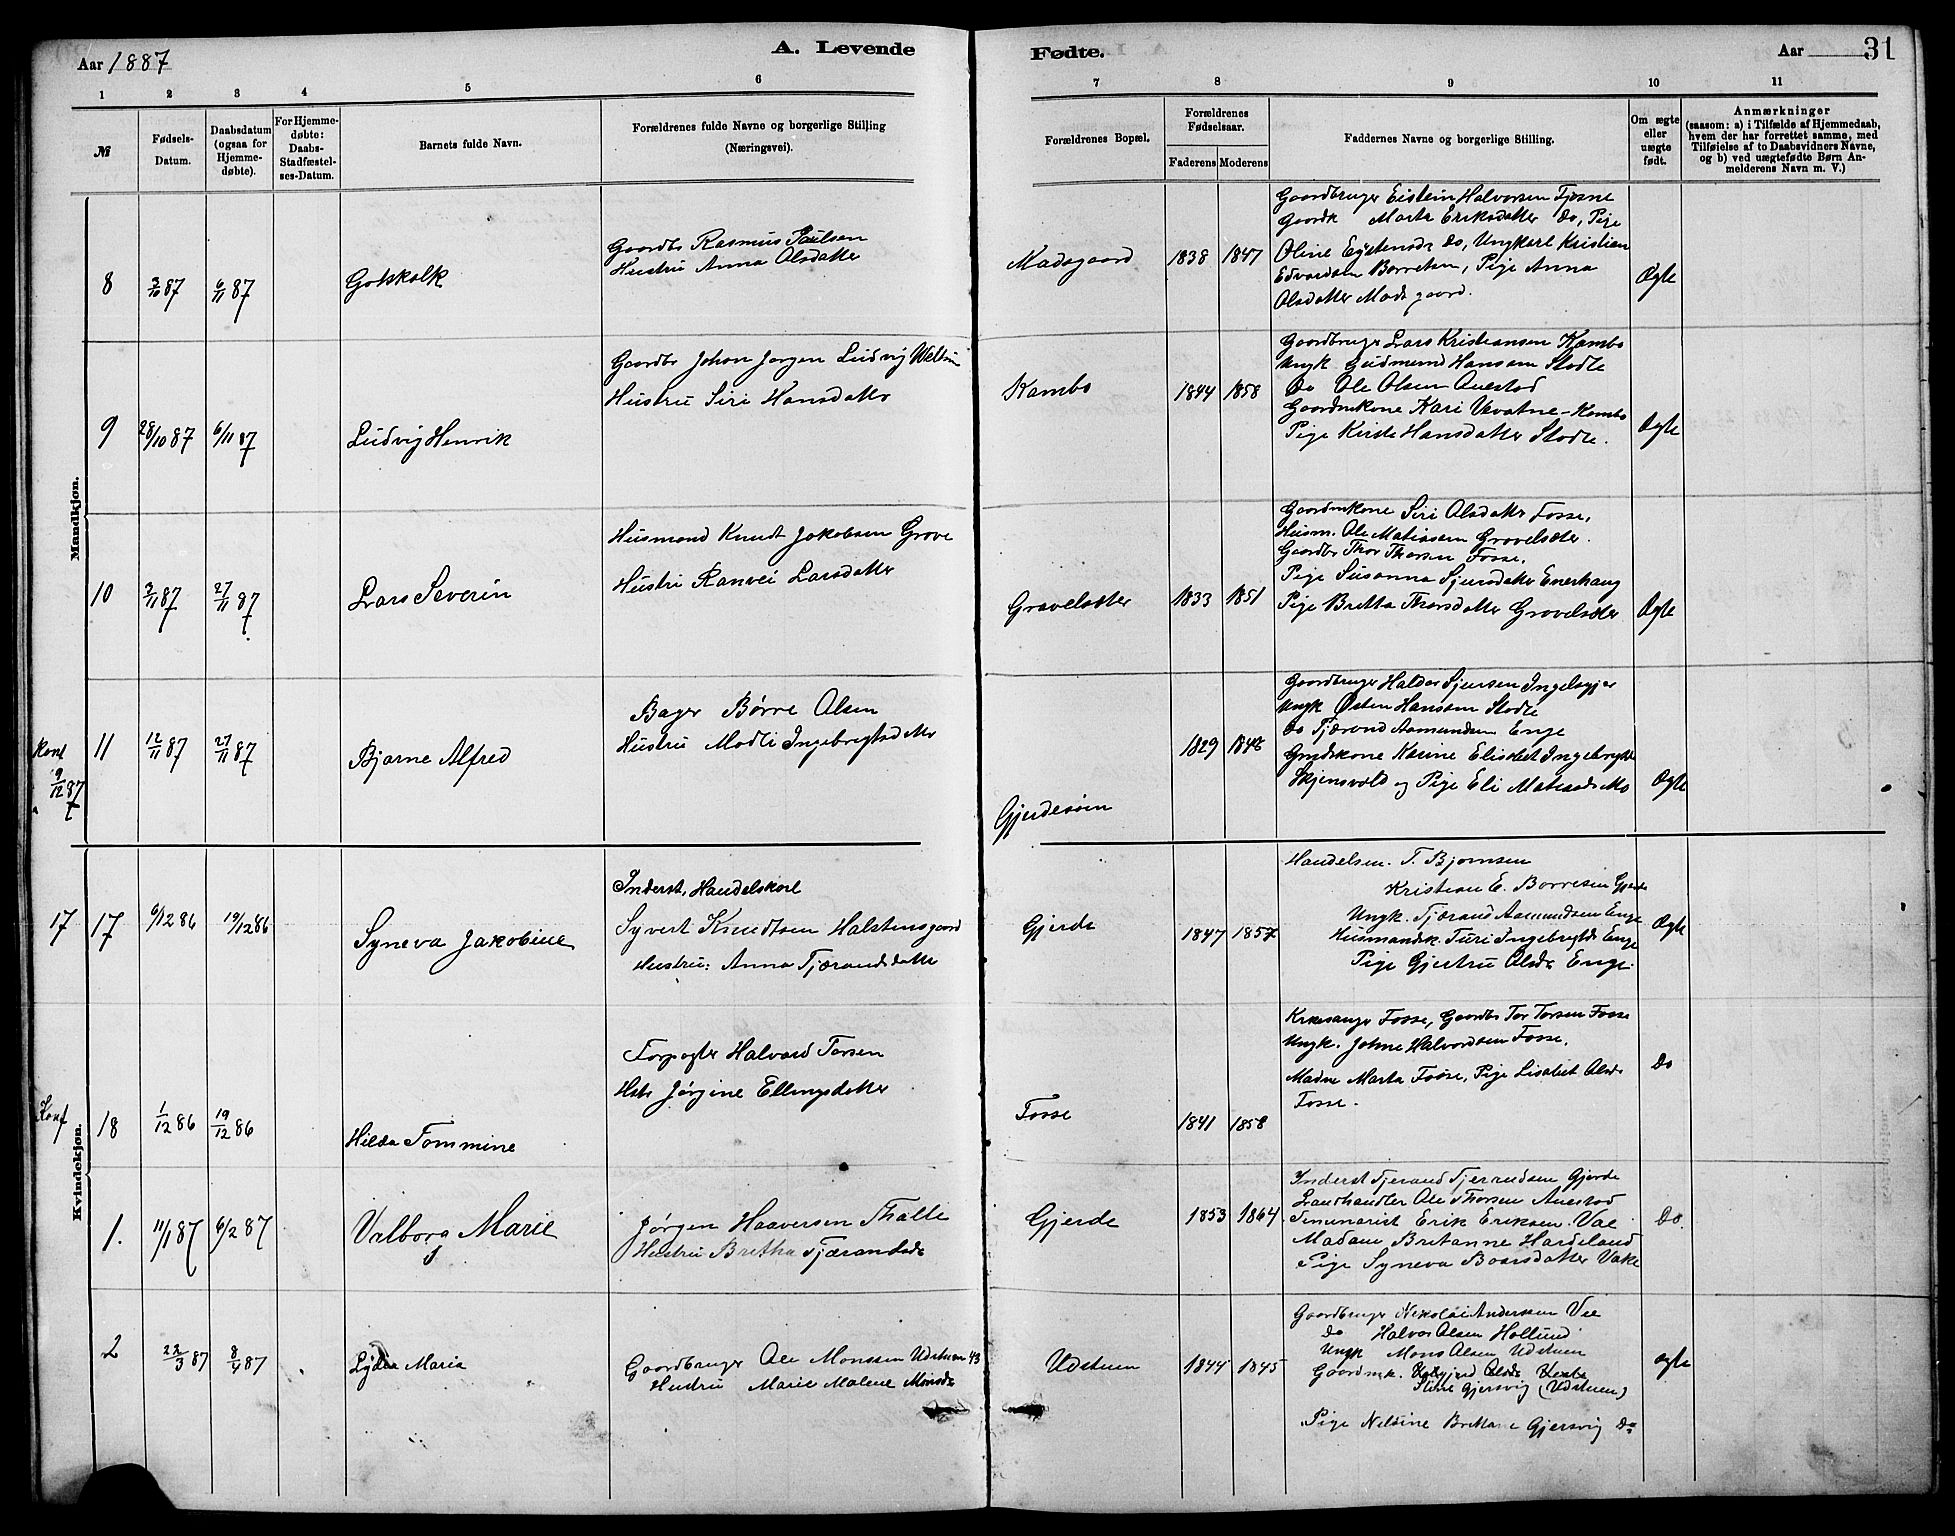 Aar 1887
A. Levende
Fødte.
Aar
31
1 2 3 4 5 6 7 8 9 10 11
№
Fødsels-
Datum.
Daabsdatum
(ogsaa for
Hjemme-
døbte).
For Hjemme-
døbte:
Daabs-
Stadfæstel-
ses-Datum.
Barnets fulde Navn.
Forældrenes fulde Navne og borgerlige Stilling
(Næringsvei).
Forældrenes Bopæl.
Forældrenes
Fødselsaar.
Faderens Moderens
Faddernes Navne og borgerlige Stilling.
Om ægte
eller
uægte
født.
Anmærkninger
(saasom: a) i Tilfælde af Hjemmedaab,
hvem der har forrettet samme, med
Tilføielse af to Daabsvidners Navne,
og b) ved uægtefødte Børn An-
melderens Navn m. V.)
Mandkjøn.
8
87
6/11 87
Gotskalk
Gaardbr Rasmus Paulsen
Hustru Anna Olsdatter
Madsgaard
1838 1847
Gaardbruger Eistein Halvorsen Tjøsne
Gaardk Marta Eriksdatter Do, Pige
Oline Do, Ungkarl Kristian
Edvardsen Børretsen, Pige Anna
Olsdatter Madsgaard.
Ægte
9
28/10 87
6/11 87
Ludvig Henrik
Gaardbr Johan Jørgen Ludvig
Hustru Siri Hansdatter
Kambo
1844 1858
Gaardbruger Lars Kristiansen Kambo
Ungk Gudmund Hansen Stødle
Do Ole Olsen Auestad
Gaardmkone Kari - Kambo
Pige Kirsti Hansdatter Stødle.
Ægte
10
2/11 87
27/11 87
Lars Severin
Husmand Knudt Jakobsen Grove
Hustru Ranvei Larsdatter
Gravelsæter
1833 1851
Gaardmkone Siri Olsdatter Fosse,
Husm. Ole Matiasen Gravelsæter.
Gaardbr Thor Thorsen Fosse.
Pige Susanna Sjursdatter Enerhaug
Pige Britta Thorsdatter Gravelsæter
Ægte
Konf
9/12 87
11
12/11 87
27/11 87
Bjarne Alfred
Bager Børre Olsen
Hustru Madli Ingebrigtsdatter
Gjerdesøen
1829 1848
Gaardbruger Haldor Sjursen
Ungk Østen Hansen Stødle
Do Tjærand Aamundsen Enge
Karine Elisabet
Skjensvold og Pige Eli
Ægte
Kvindekjøn.
17
17
6/12 86
19/12 86
Syneva Jakobine
Inderst, Handelskarl
Syvert Knudtsen Halstensgaard
Hustru: Anna Tjærandsdatter
Gjerde
1847 1857
Handelsm. T. Bjørnsen
Kristian E. Børresen Gjerde
Ungk. Tjærand Aamundsen Enge
Husmandsk. Turi Ingebrigtsd Enge
Pige Gjertru Olsdr Enge.
Ægte
Konf
18
1/12 86
19/12 86
Hilda Tommine
Forpagter Halvard Torsen
Hstr Jørgine Ellingsdatter
Fosse
1841 1858
Kirkesanger Fosse, Gaardbr Tor Torsen Fosse
Ungk. Johne Halvordsen Fosse,
Madme Marta Fosse, Pige Lisabet Olsdr
Fosse.
Do
1.
11/1 87
6/2 87
Valborg Marie
Jørgen Haaversen Thalle
Hustru Britha Tjærandsdr
Gjerde
1853 1864
Inderst Tjerand Tjerandsen Gjerde
Landhandler Ole Thorsen Auestad
Seminarist Erik Eriksen Vae
Madam Britanne Hardeland
Pige Syneva Baarsdatter Vake
Do.
2
22/3 87
8/4 87
Lydia Maria
Gaardbruger Ole Monssen Udstuen 43
Hustru Marie Malene Monsdr
Udstuen
1844 1845
Gaardbruger Nikolai Anderssen Vie
Do Halvor Olsen Hollund
Ungk Mons Olsen Udstuen
Gaardmk. Olsdr
Stine Gjersvig (Udstuen)
Pige Nelsine Gjersvig Do
ægte